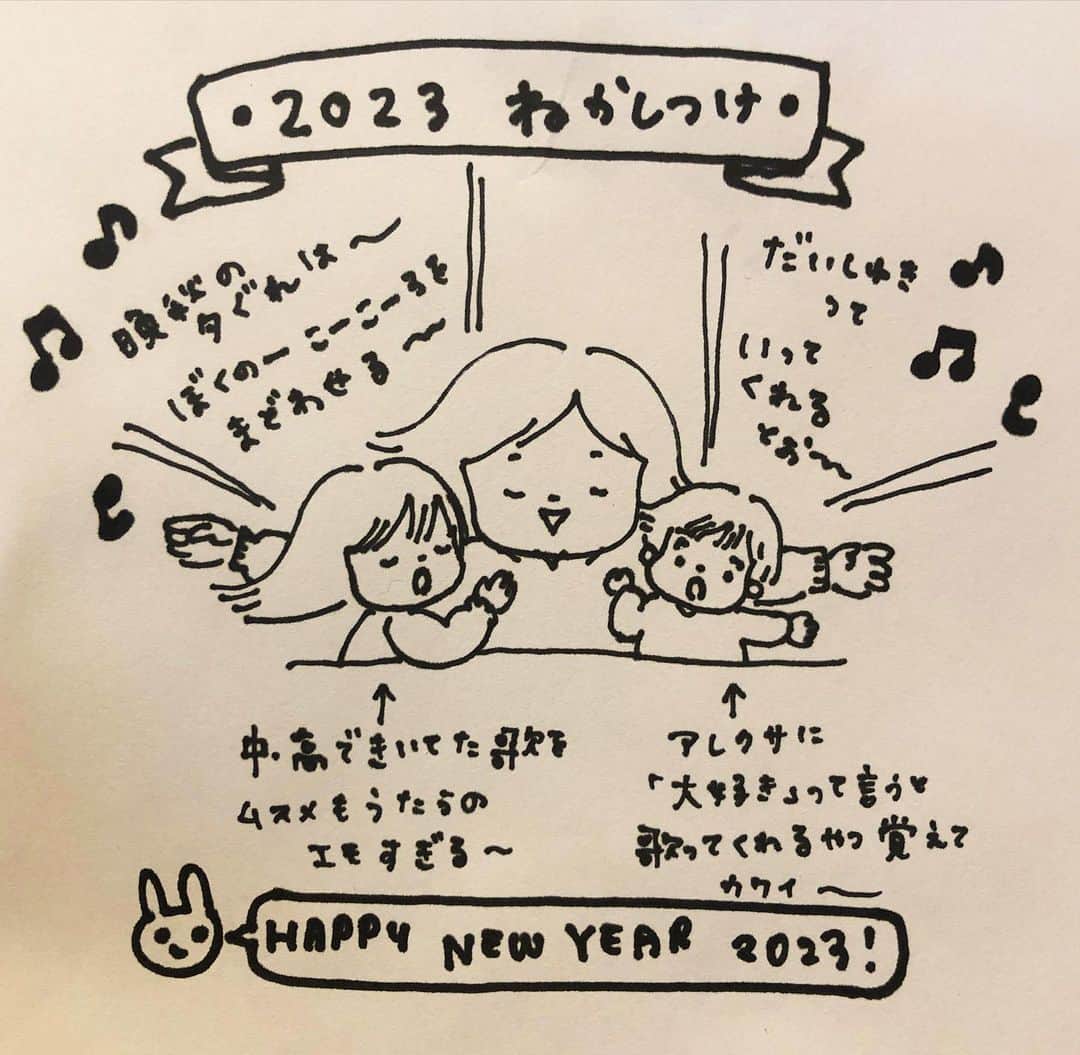 ・2023 ねかしつけ・
晩秋の
夕ぐれは〜
ぼくのーこーこーろを
まどわせる〜
だいしゅき
って
いって
くれる
とぉ〜
中・高できいてた歌を
ムスメもうたうの
エモすぎる〜
アレクサに
「大好き」って言うと
歌ってくれるやつ覚えて
カワイ〜
HAPPY NEW YEAR 2023!